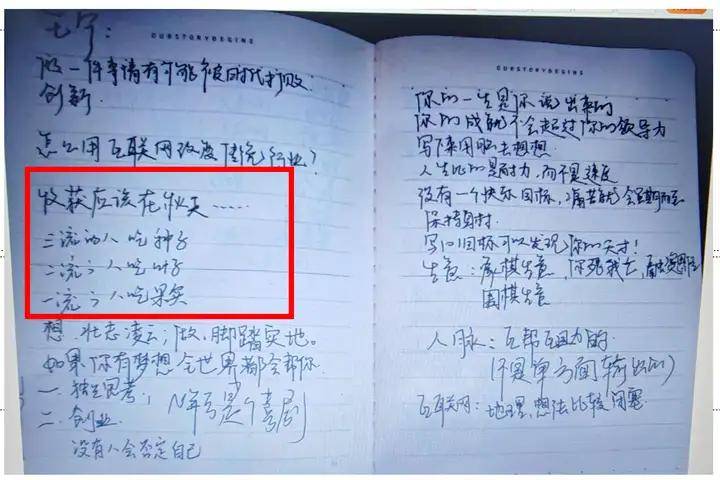 王宁：
OURSTORYBEGINS
做一件事请有可能被时代打败
创新
怎么用互联网改变传统行业？
收获应该在秋天……
三流的人吃种子
二流之人吃叶子
一流之人吃果实
想，壮志凌云；做，脚踏实地。
如果你有梦想全世界都会帮你
一.独立思考；
二.创业
没有人会否定自己
OURSTORYBEGINS
你的一生是你说出来的
你的成就不会超过你的领导力
写下来用脚去想想
人生比的是耐力，而不是速度
没有一个快乐目标，痛苦就会如期而至
保持真材
写100目标可以发现你的天才！
生意：象棋生意，你死我亡，
围棋生意
人脉：互帮互助力的
（不是单方面输出的）
互联网：地理，想法比较闭塞